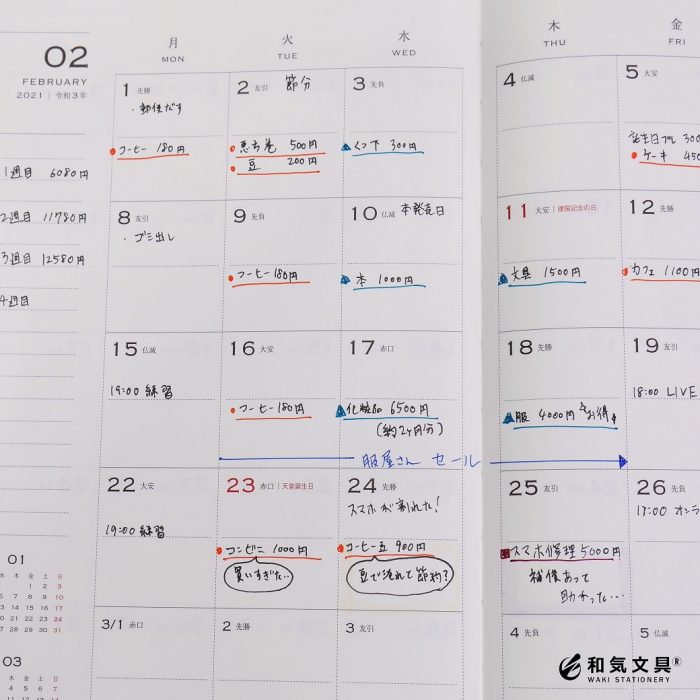 02
FEBRUARY
2021 | 令和3年
1週目 6080円
2週目 11780円
3週目 12580円
4週目
月
MON
火
TUE
水
WED
木
THU
金
FRI
1 先勝
・郵便だす
コーヒー 180円
2 友引 節分
恵方巻 500円
豆 200円
3 先負
くつ下 300円
4 仏滅
5 大安
誕生日プレ 300
ケーキ 450
8 友引
・ゴミ出し
9 先負
コーヒー 180円
10 仏滅 本発売日
本 1000円
11 大安 | 建国記念の日
文具 1500円
12 先勝
カフェ 1100円
15 仏滅
19:00 練習
16 大安
コーヒー 180円
17 赤口
化粧品 6500円
(約2ヶ月分)
18 先勝
服 4000円 お得
19 友引
18:00 LIVE
服屋さん セール
22 大安
19:00 練習
23 赤口 | 天皇誕生日
コンビニ 1000円
買いすぎた…
24 先勝
スマホが割れた!
コーヒー豆 900円
豆で淹れて節約?
25 友引
スマホ修理 5000円
補償あって
助かった…
26 先負
17:00 オンラ
3/1 赤口
2 先勝
3 友引
4 先負
5 仏滅
01
水 木 金 土 日
1 2 3
6 7 8 9 10
13 14 15 16 17
20 21 22 23 24
27 28 29 30 31
03
水 木 金 土 日
和気文具®
WAKI STATIONERY